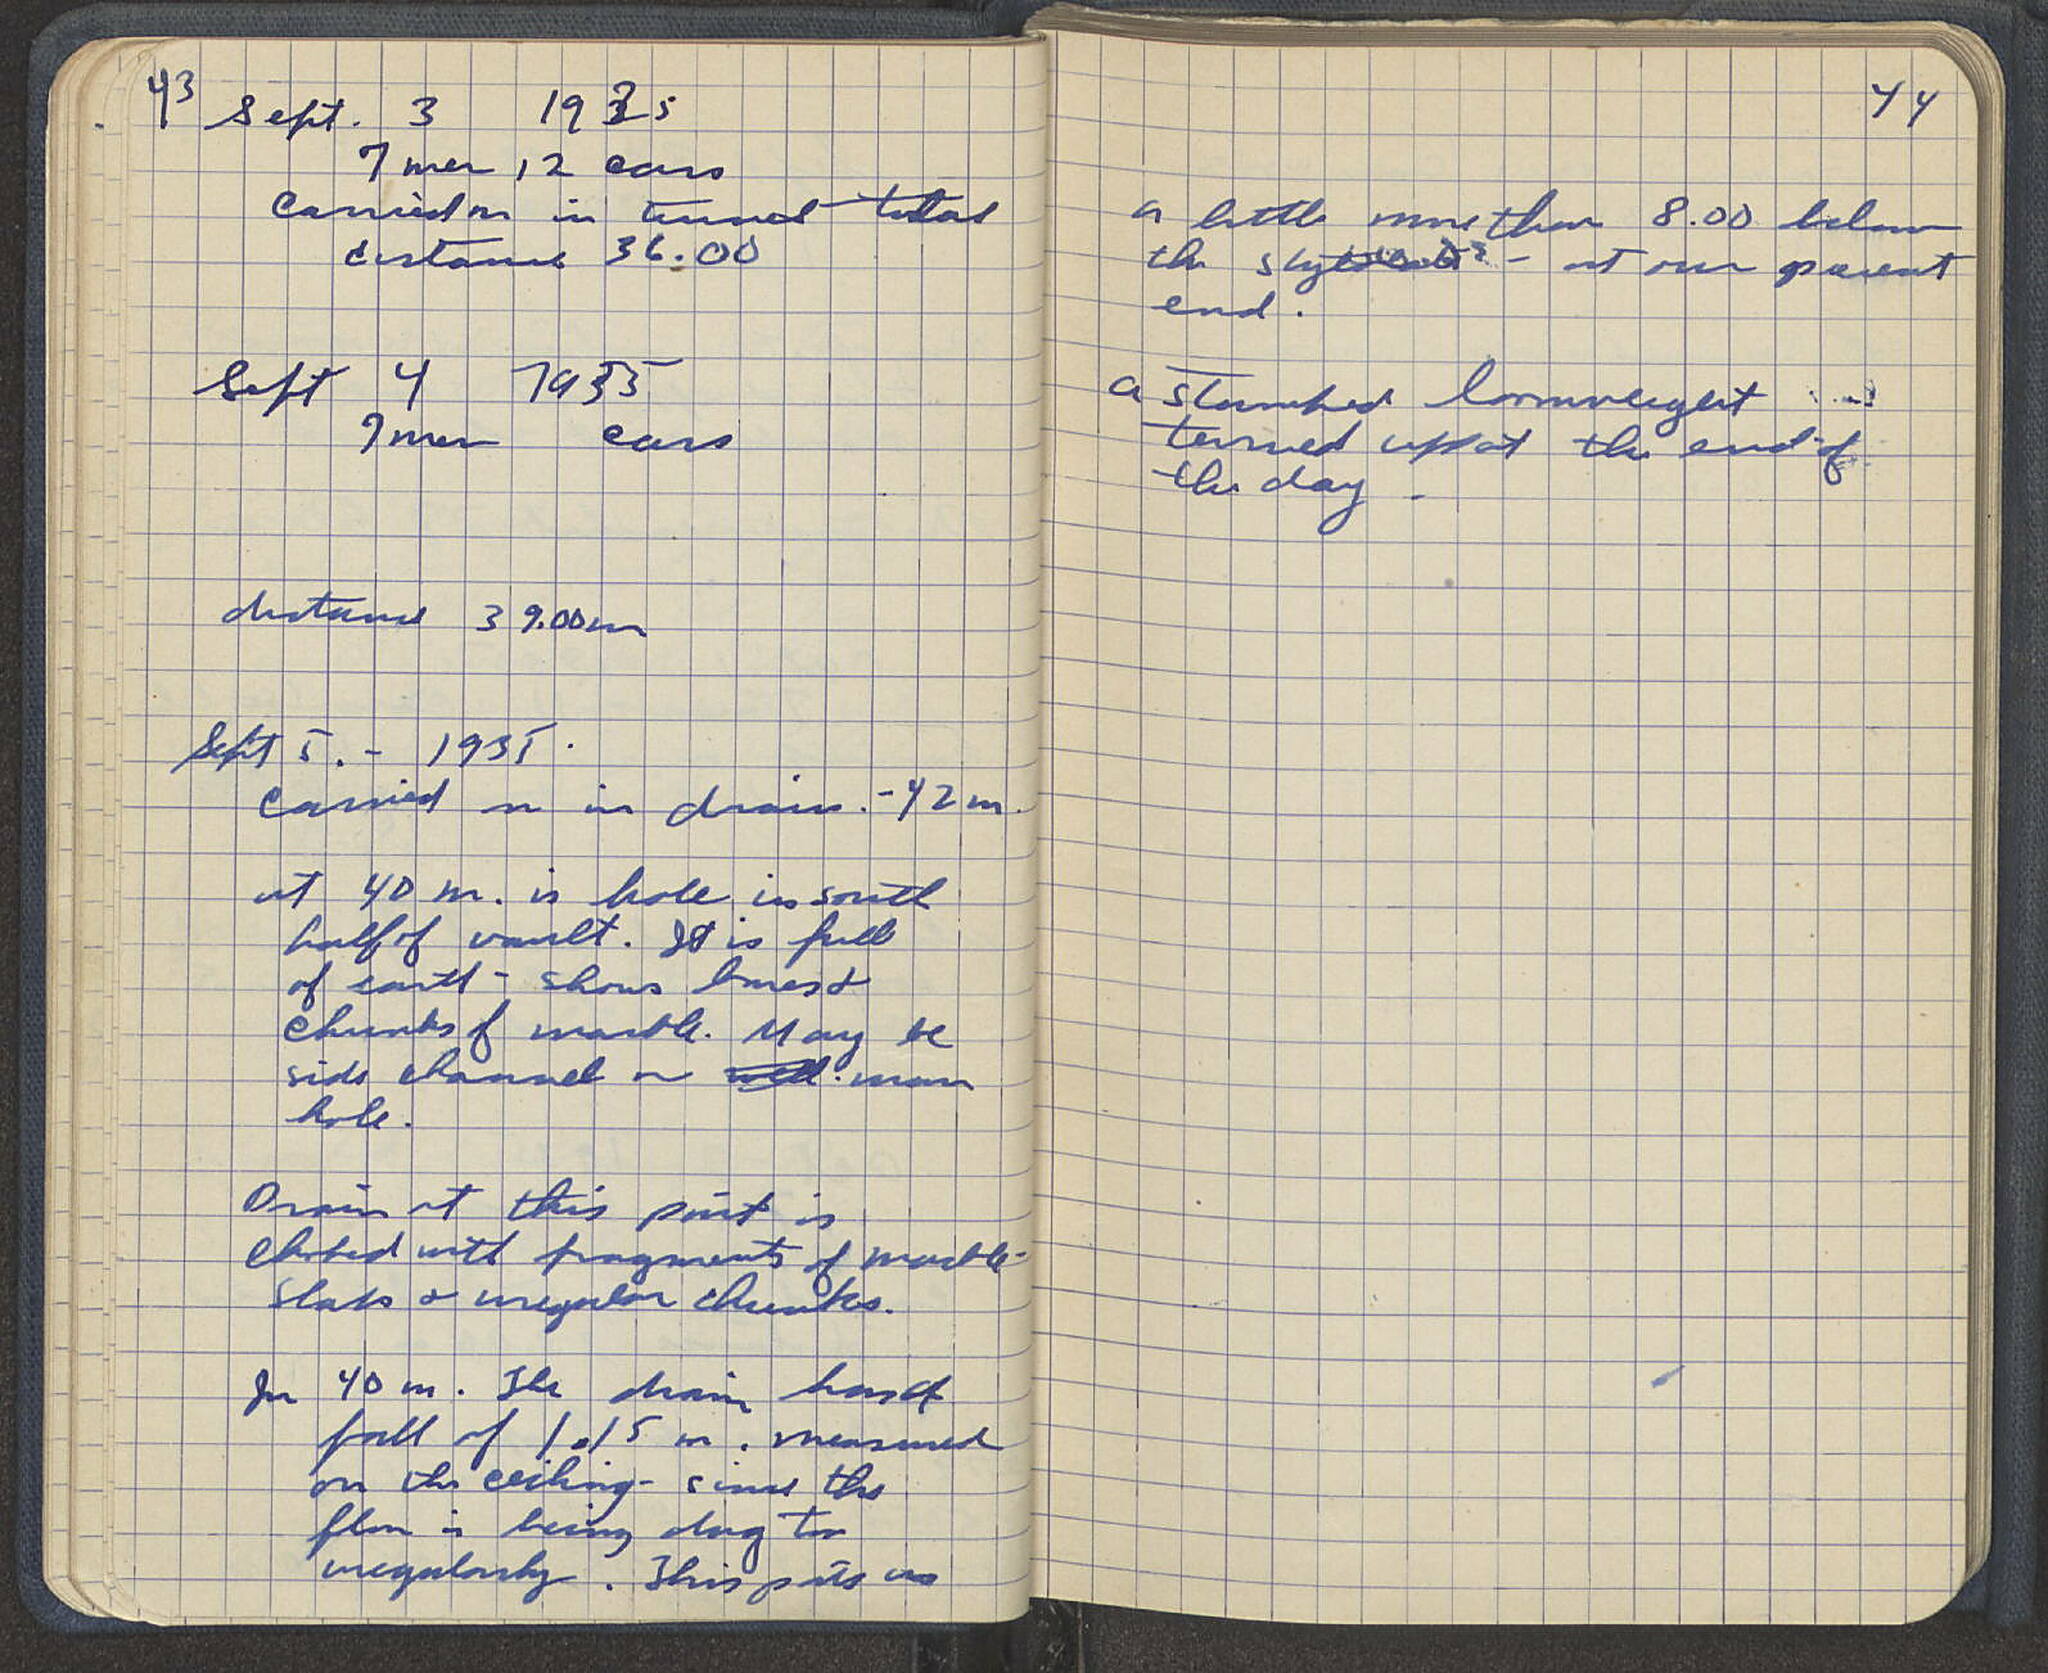 43
Sept. 3 1935
7 men 12 cars
carried on in tunnel total
distance 36.00
Sept 4 1935
7 men cars
distance 39.00 m
Sept 5. - 1935.
carried on in drain. - 42 m.
at 40 m. is hole in south
half of vault. It is full
of earth - shows bones &
chunks of marble. May be
side channel or well. man
hole.
Drain at this point is
choked with fragments of marble -
slabs & irregular chunks.
In 40 m. the drain has a
fall of 1.15 m. measured
on the ceiling - since the
floor is being dug too
irregularly. This puts us
44
a little more than 8.00 below
the - at our present
end.
a stamped loomweight
turned up at the end of
the day -